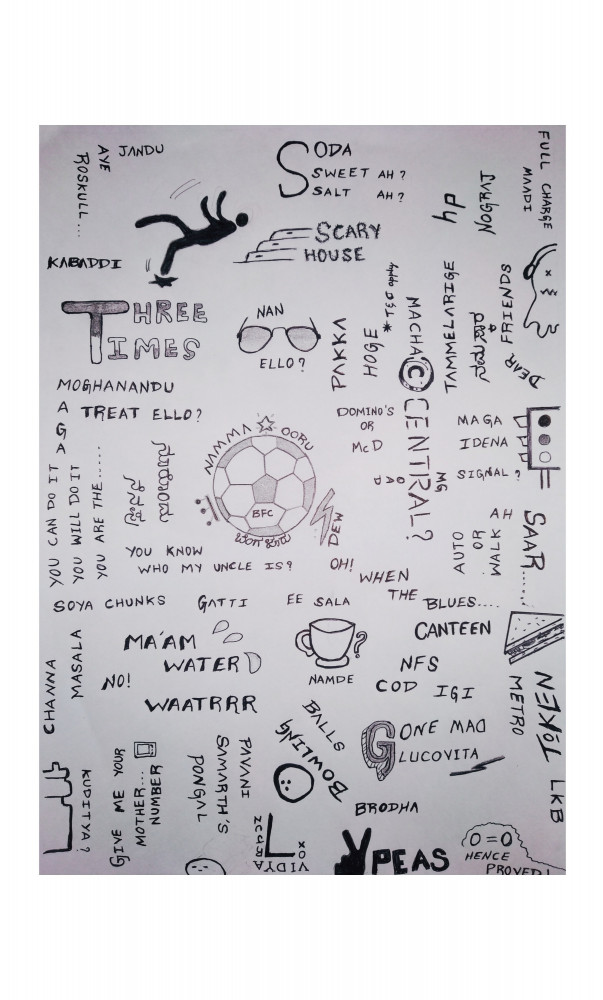 AYE
JANDU
ROSKULL...
SODA
SWEET AH?
SALT AH?
NOGRAJ
FULL CHARGE
MAADI
KABADDI
SCARY
HOUSE
THREE
TIMES
NAN
ELLO?
PAKKA
HOGE
MACHA
TAMMELARIGE
DEAR FRIENDS
MOGHANANDU
AGA
TREAT ELLO?
DOMINO'S
OR
McD
C
CENTRAL?
MG
MAGA
IDENA
SIGNAL?
YOU CAN DO IT
YOU WILL DO IT
YOU ARE THE......
NAMMA OORU
BFC
DEW
AH
AUTO
OR
WALK
SAAR.....
YOU KNOW
WHO MY UNCLE IS?
OH!
WHEN
THE
BLUES....
SOYA CHUNKS
GATTI
EE SALA
CHANNA
MASALA
MA'AM
WATER
NO!
WAATRRR
NAMDE
?
CANTEEN
NFS
COD
IGI
METRO
TOKEN
LKB
KUDITYA?
GIVE ME YOUR
MOTHER...
NUMBER
PAVANI
SAMARTH'S
PONGAL
BOWLING
BALLS
GONE MAD
GLUCOVITA
BRODHA
VIDYA
PEAS
0=0
HENCE
PROVED!